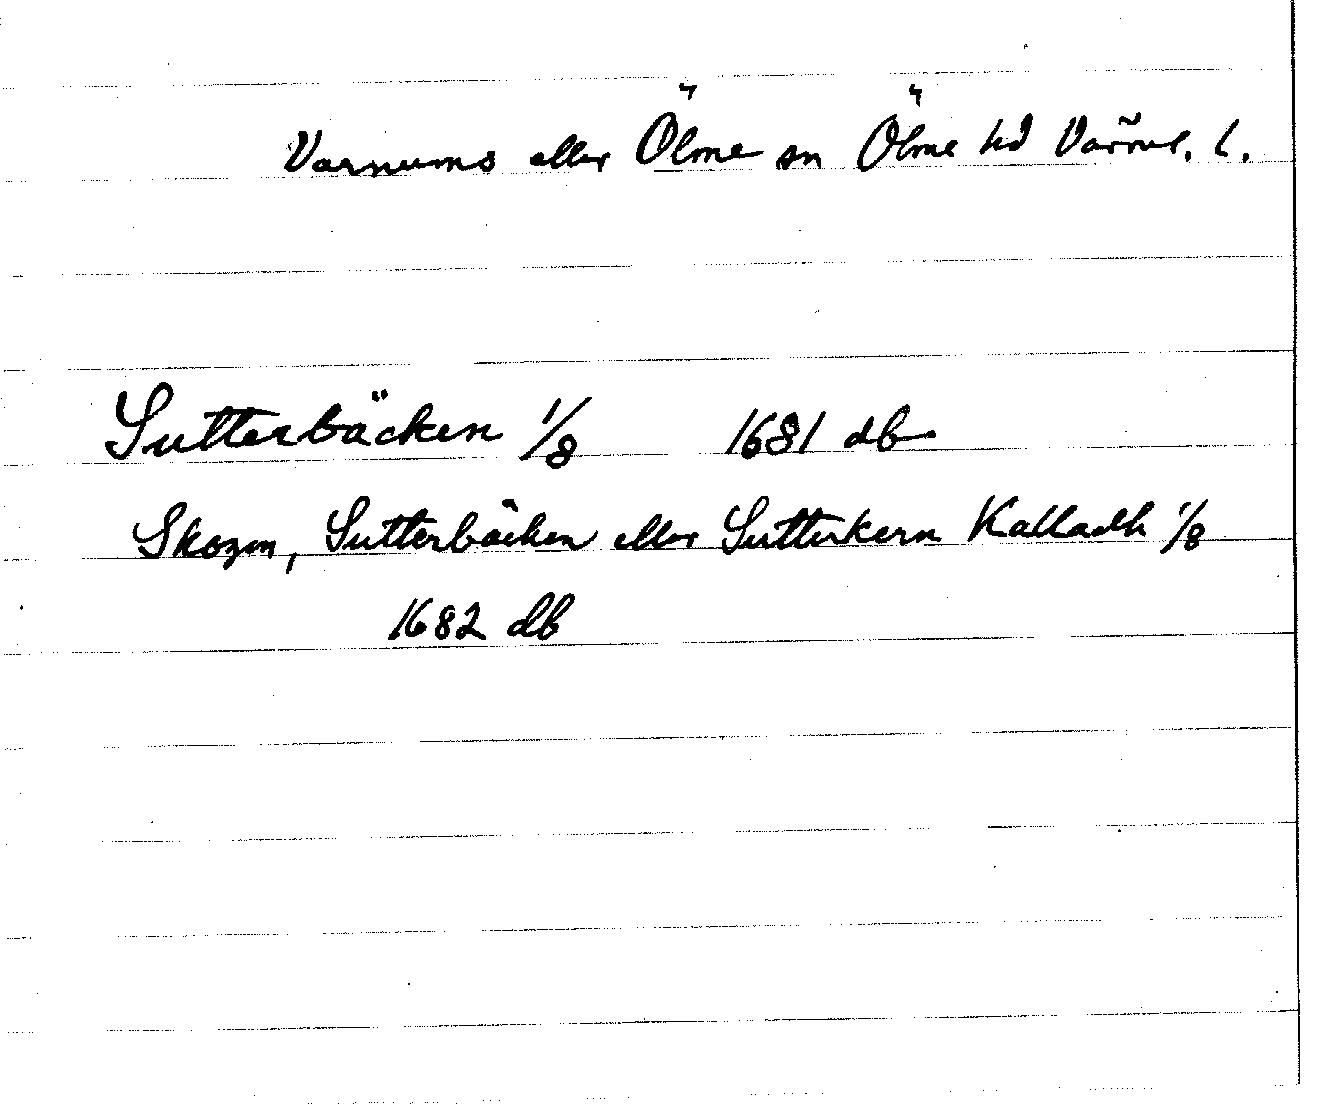 Varnums eller Ölme sn Ölme hd Värml. l.
Sutterbäcken 1/8 1681 db
Skogen, Sutterbäcken eller Sutterkern Kalladh 1/8
1682 db